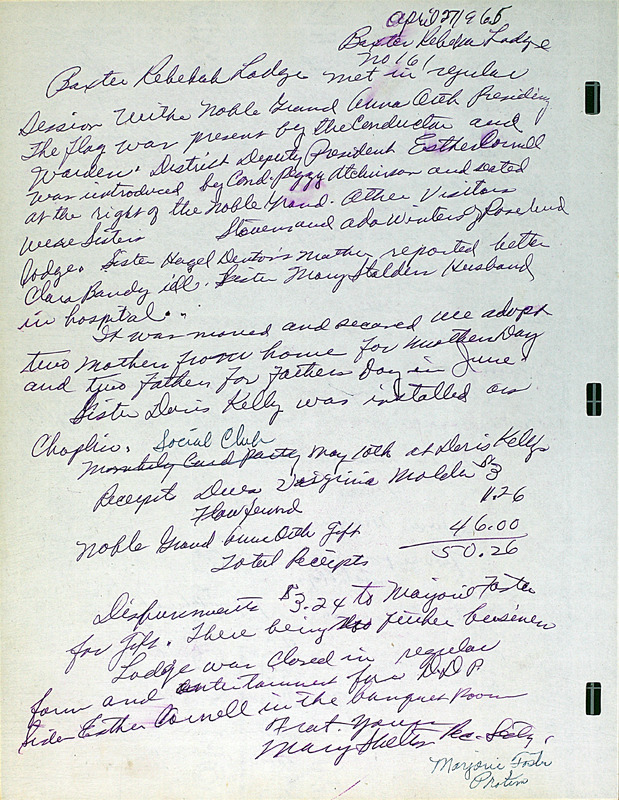 April 27 1965
Baxter Rebekah Lodge
No 161
Baxter Rebekah Lodge met in regular
Session With Noble Grand Anna Orth Presiding
The flag was present by the Conductor and
Warden. District Deputy President Esther Cornell
was introduced by Cond. Peggy Atchinson and seated
at the right of the Noble Grand. Other Visitors
were Sisters Stevens and Ada Winters of Rose bud
lodge. Sister Hazel Denton's Mother reported better
Clara Bandy ill. Sister Mary Stelden Husband
in hospital.
It was moved and second we adopt
two Mothers from home for Mother Day
and two fathers for Fathers Day in June.
Sister Doris Kelly was installed as
Chaplin. Social Club
Monthly Card Party May 10th at Doris Kellys
Receipts Dues Virginia Molder $3
Flow fund 1.26
Noble Grand Anna Orth Gift 46.00
Total Receipts 50.26
Dispursments $3.24 to Marjorie Foster
for Gift. There being no futher buisiness
Lodge was Closed in regular
form and entertainment for D.D.P.
Sister Esther Cornell in the banquet Room
Frat. Yours
Mary Shelton Rec. Secty.
Marjorie Foster
Protem